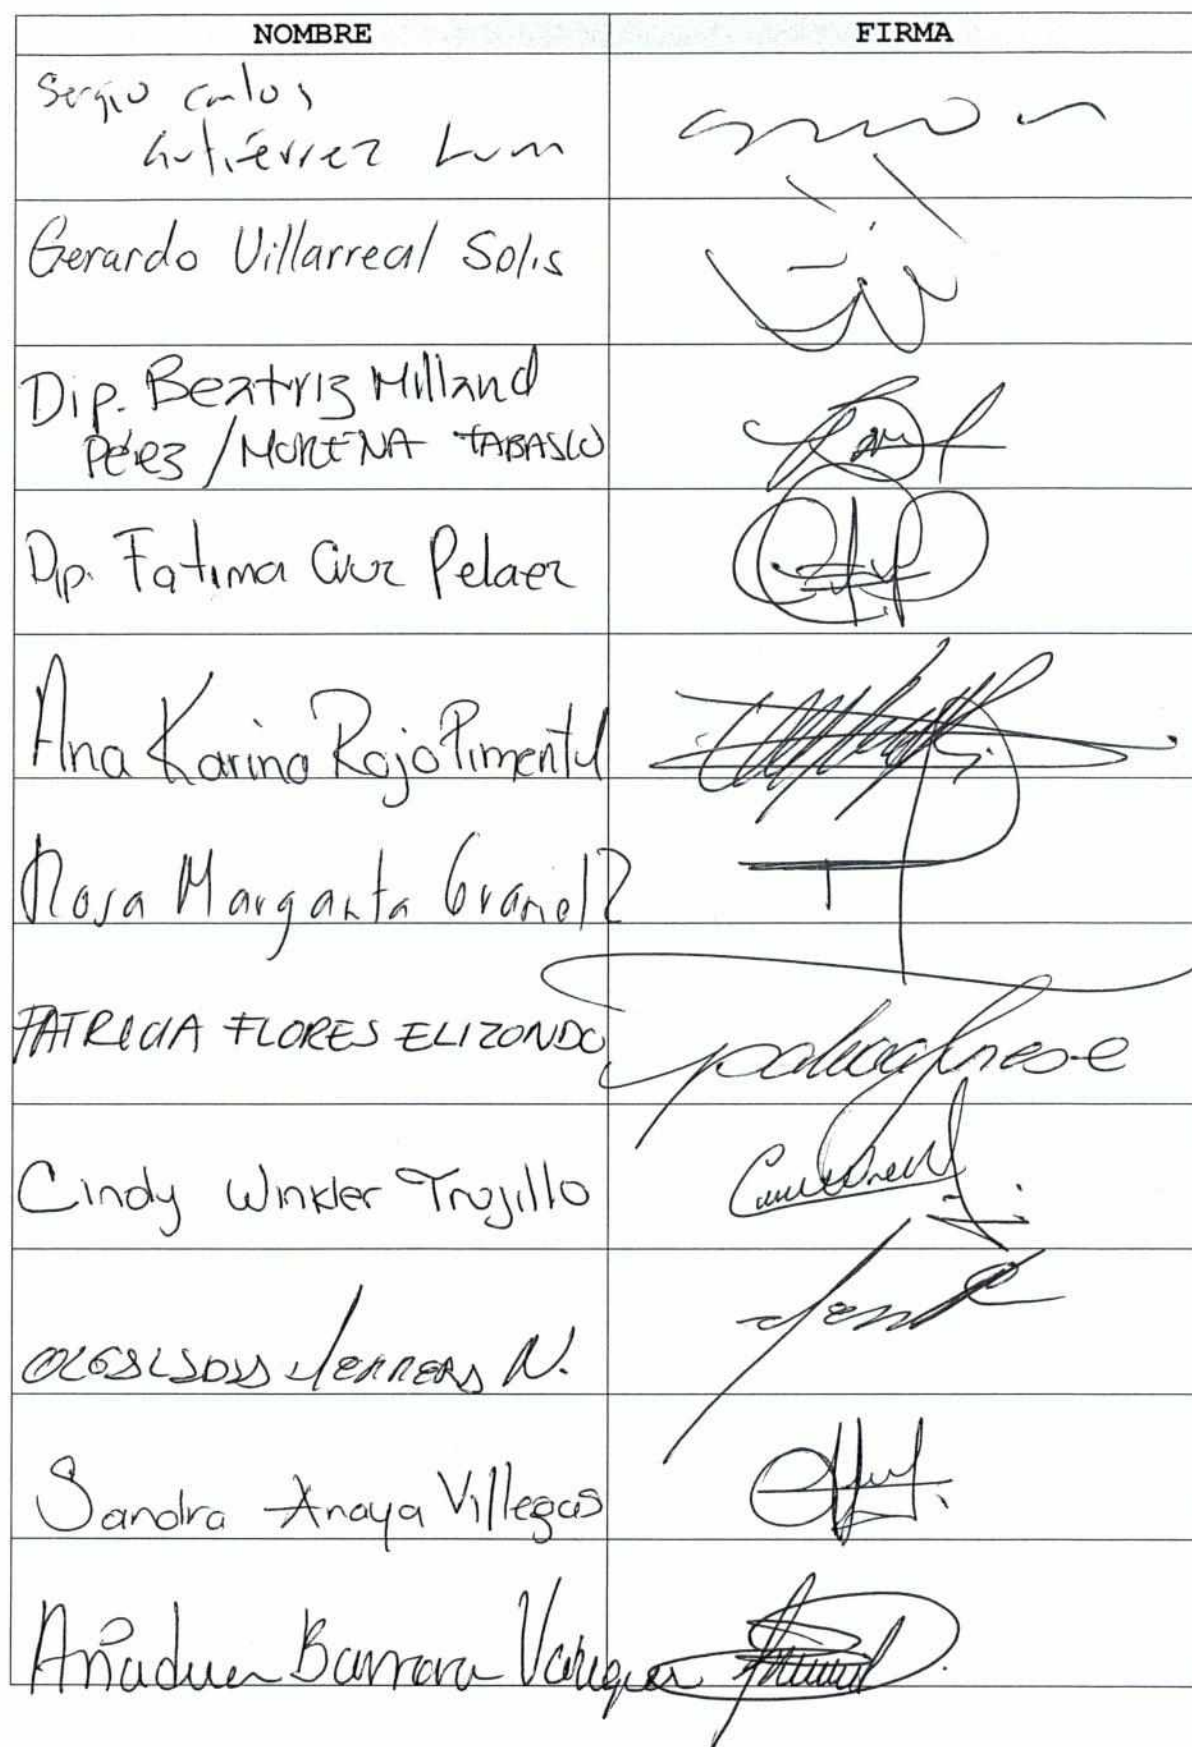 NOMBRE FIRMA
Sergio Carlos
Gutiérrez Luna
Gerardo Villarreal Solis
Dip. Beatriz Milland
Pérez / MORENA TABASCO
Dip. Fatima Cruz Pelaez
Ana Karina Rojo Pimentel
Rosa Margarita Graniel Z
PATRICIA FLORES ELIZONDO
Cindy Winkler Trujillo
HERRERA N.
Sandra Anaya Villegas
Barrera